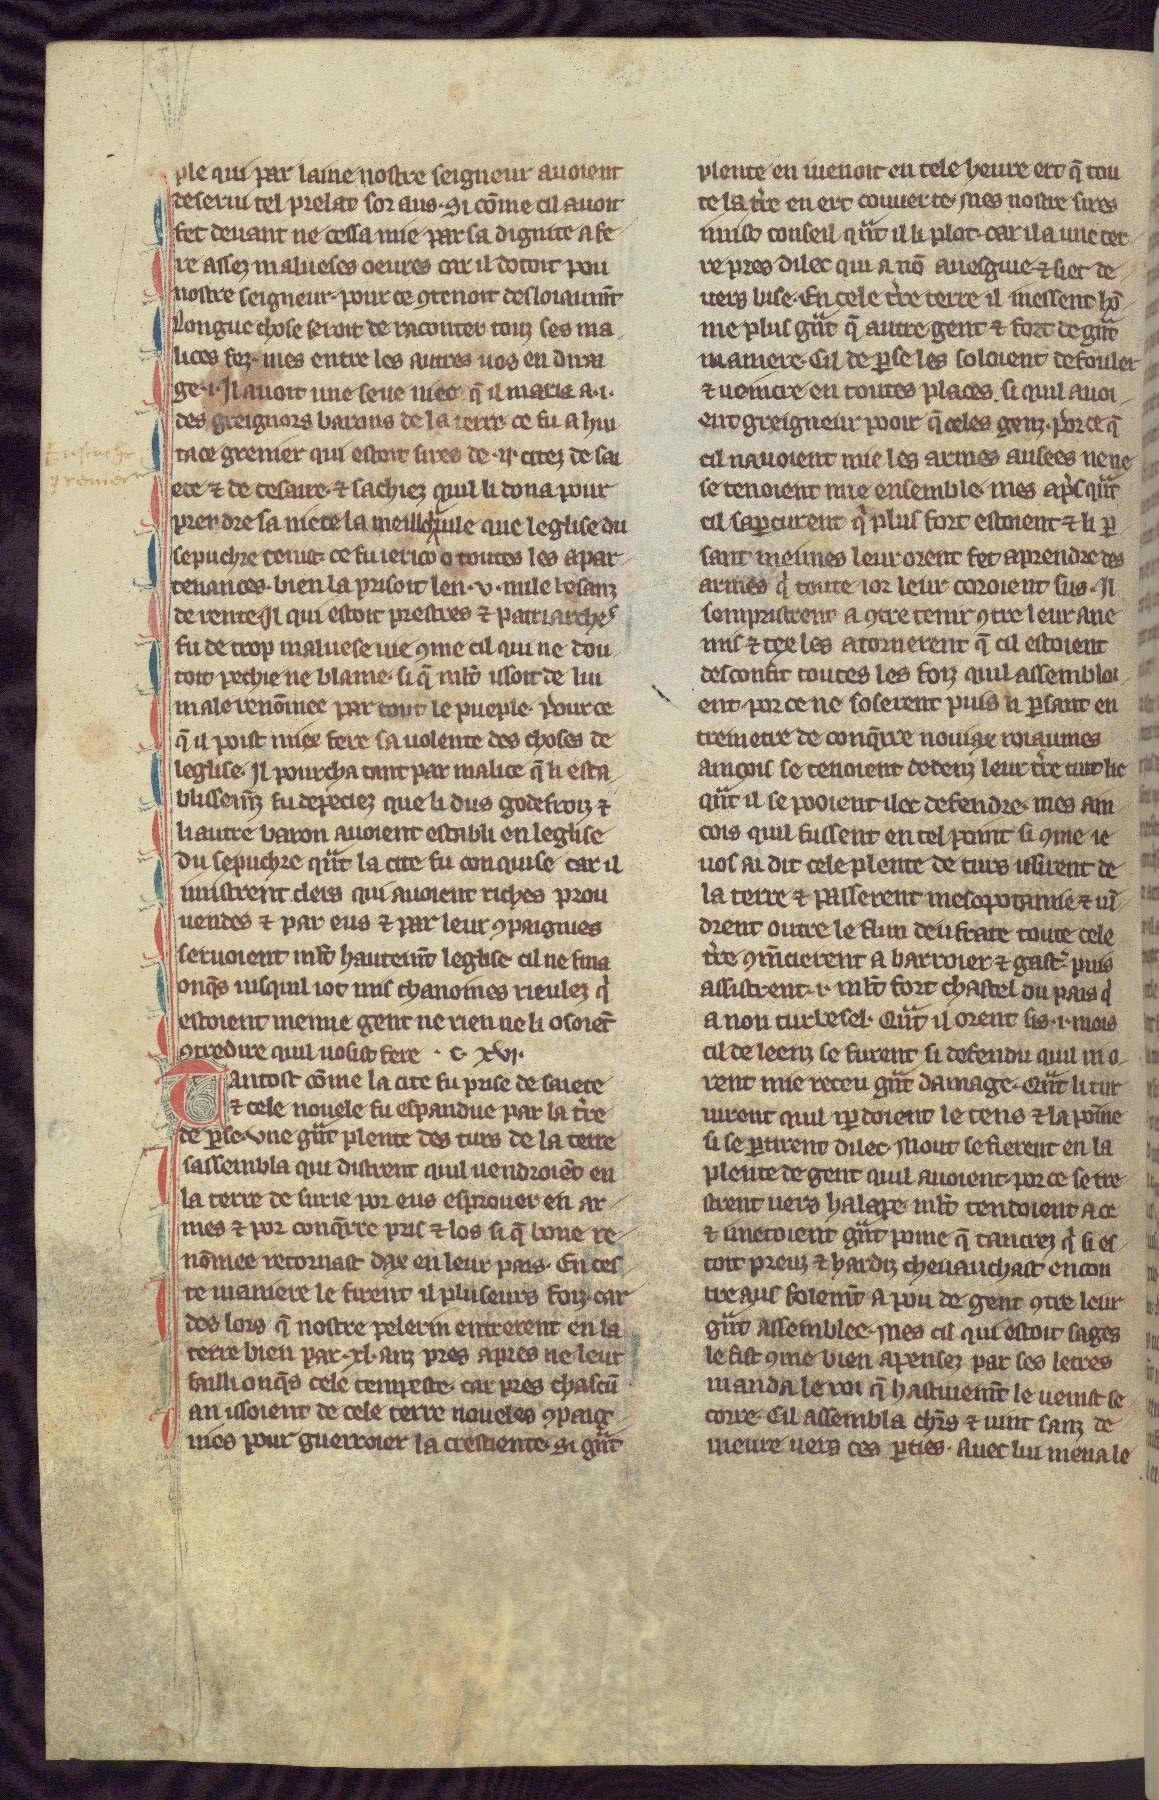 ple qui par laine nostre seigneur auoient
deserui tel prelat sor aus. Si cõme cil auoit
fet deuant ne cessa mie par sa dignite a fe
re assez malueses oeures car il dotoit pou
nostre seigneur. pour ce ꝯtenoit desloiaumt̃
Longue chose seroit de raconter touz ses ma
lices fez. mes entre les autres uos en dirai
ge .i. Il auoit une seue niece q̃ il maria a .i.
des greignors barons de la terre. ce fu a hui
tace grenier qui estoit sires de .ii. citez de sai
ete ⁊ de cesaire. ⁊ sachiez quil li dona pour
Eustache
grenier
prendre sa niece la meilleur uile que leglise du
sepuchre tenist. ce fu ierico o toutes les apar
tenances. bien la prisoit len .v. mile besanz
de rente. Il qui estoit prestres ⁊ patriarches
fu de trop maluese uie ꝯme cil qui ne dou
toit pechie ne blame. si q̃ mlt̃ issoit de lui
male renõmee par tout le pueple. Pour ce
q̃ il poist miex fere sa uolente des choses de
leglise. Il pourcha tant par malice q̃ li esta
blissemz̃ fu depeciez que li dus godefroiz ⁊
li autre baron auoient establi en leglise
du sepuchre qñt la cite fu conquise car il
mistrent clers qui auoient riches prou
uendes ⁊ par eus ⁊ par leur ꝯpaignies
seruoient mlt̃ hautemt̃ leglise cil ne fina
onq̃s iusquil iot mis chanoines rieulez q̇
estoient menue gent ne rien ne li osoiẽt
ꝯtredire quil uosist fere . c. xvi.
Tantost cõme la cite fu prise de saiete
⁊ cele nouele fu espandue par la tr̃e
de ꝑse. Vne gñt plente des turs de la terre
sassembla qui distrent quil uendroiẽt en
la terre de surie por eus esprouer en ar
mes ⁊ por conq̃rre pris ⁊ los si q̃ bone re
nõmee retornast dax en leur pais. En ces
te maniere le firent il pluseurs foiz. car
des lors q̃ nostre pelerin entrerent en la
terre bien par .xl. anz pres apres ne leur
failli onq̃s cele tempeste. car pres chascũ
an issoient de cele terre noueles ꝯpaig
nies pour guerroier la crestiente. Si gñt
plente en uenoit en tele heure ert q̃ tou
te la tr̃e en ert couuerte. Mes nostre sires
mist conseil qñt il li plot. car il a une ter
re pres dilec qui a nõ auesguie. ⁊ siet de
uers bise. En cele tr̃e terre il niessent hõ
me plus gñt q̃ autre gent ⁊ fort de gñt
maniere. Cil de ꝑse les soloient defouler
⁊ ueincre en toutes places. si quil auoi
ent greigneur pooir q̃ celes genz. Por ce q̃
cil nauoient mie les armes ausees ne ne
se tenoient mie ensemble. mes ap̃s qñt
cil saꝑcurent q̃ plus fort estoient ⁊ li ꝑ
sant meimes leur orent fet aprendre des
armes q̇ toute ior leur coroient sus. Il
sempristrent a ꝯtre tenir ꝯtre leur ane
mis ⁊ tex les atornerent q̃ cil estoient
desconfit toutes les foiz quil assembloi
ent. por ce ne soserent puis li ꝑsant en
tremetre de conq̃rre nouiax roiaumes
ainçois se tenoient dedenz leur tr̃e tuit lie
qñt il se pooient ilec defendre. mes ain
cois quil fussent en tel point si ꝯme ie
uos ai dit cele plente de turs issirent de
la terre ⁊ passerent mesopotamie ⁊ uĩ
drent outre le flun deufrate toute cele
tr̃e ꝯmẽcierent a barroier ⁊ gast̃. puis
assistrent .i. mlt̃ fort chastel du pais q̇
a non turbesel. Qñt il orent sis .i. mois
cil de leenz se furent si defendu quil nio
rent mie receu gñt damage. Qñt li tur
uirent quil iꝑdoient le tens ⁊ la poine
si se ꝑtirent dilec. Mout se fierent en la
plente de gent quil auoient. por ce se tre
strent uers halape. mlt̃ tendoient a ce
⁊ imetoient gñt poine q̃ tancrez q̇ si es
toit preuz ⁊ hardiz cheuauchast encon
tre aus folemt̃ a pou de gent ꝯtre leur
gñt assemblee. Mes cil qui estoit sages
le fist ꝯme bien apensez par ses letres
manda le roi q̃ hastiuemt̃ le uenist se
corre. Cil assembla ch̃rs ⁊ uint sanz de
meure uers ces ꝑties. Auec lui mena le